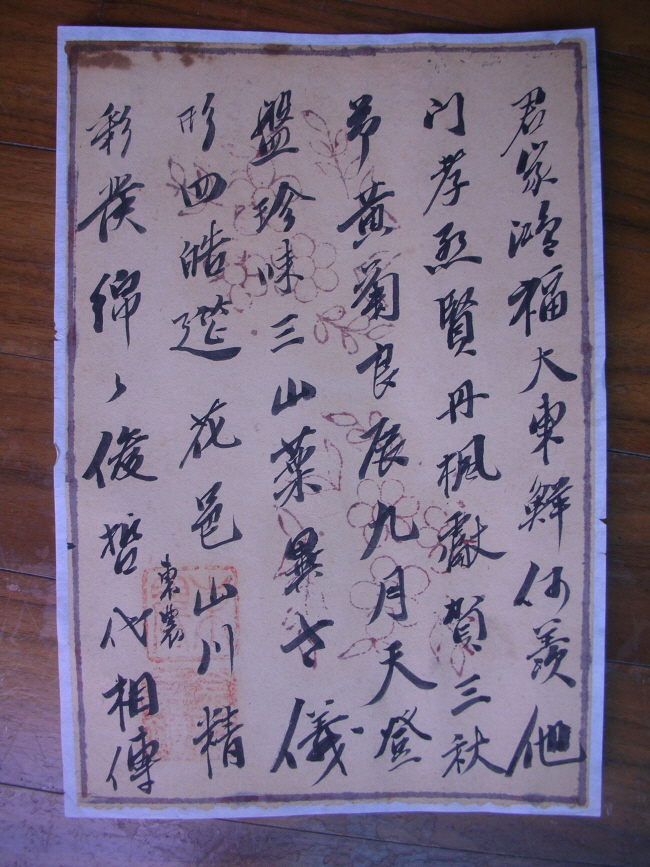 君家鴻福大東鮮何羨他
门孝烈賢丹楓獻賀三秋
節黄菊良辰九月天登
盤珍味三山菜異古儀
形四皓筵花邑山川精
彩發綿〻俊哲代相傳
東農